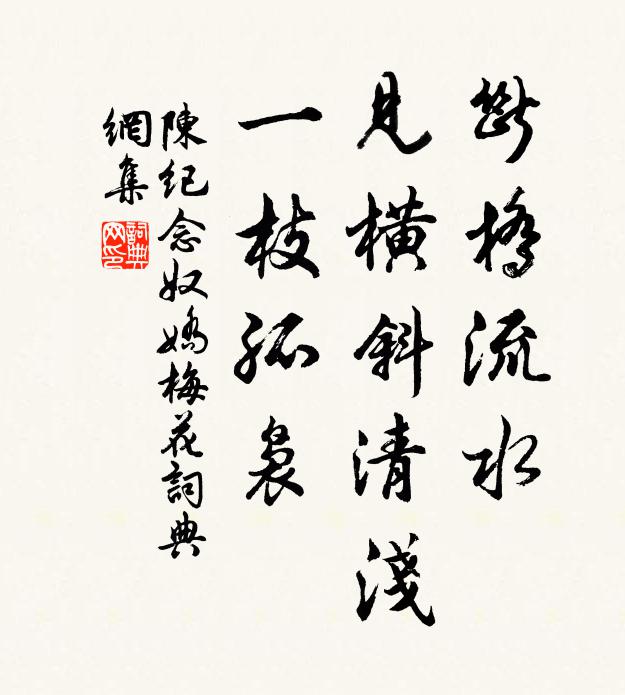 斷橋流水
見橫斜清淺
一枝孤裊
陳紀念奴嬌梅花詞典
網集
詞典網印